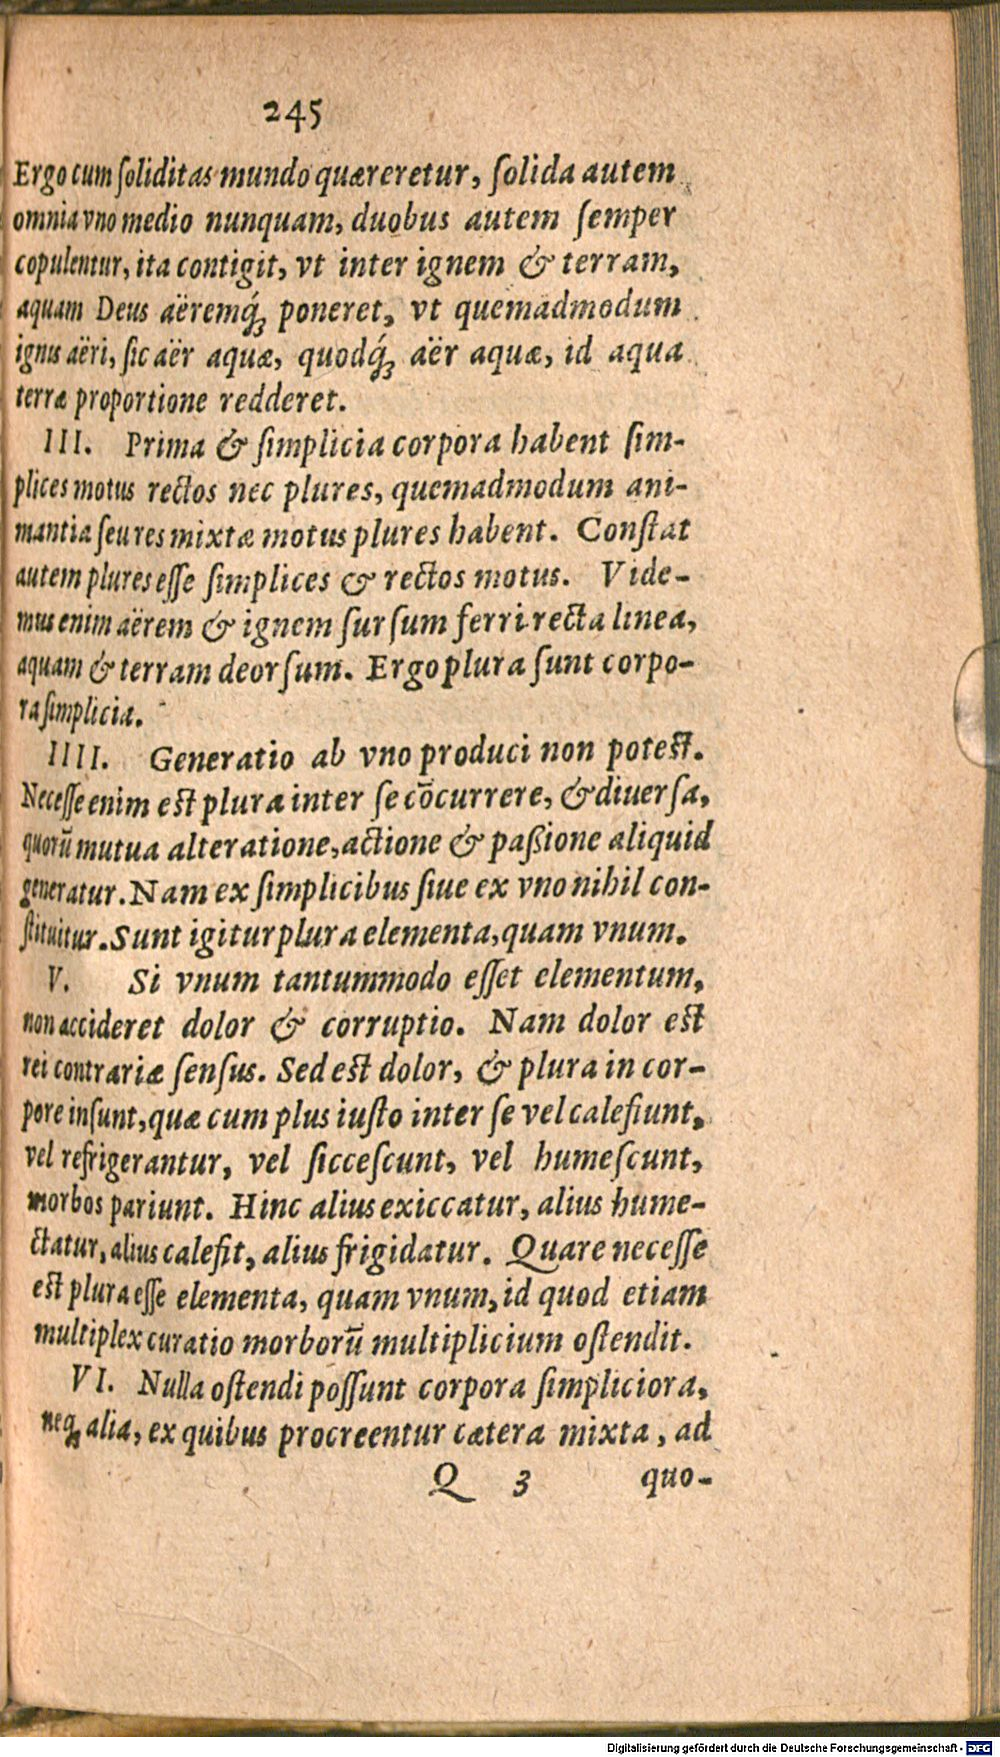 245
Ergo cum ſoliditas mundo quæreretur, ſolida autem
omnia vno medio nunquam, duobus autem ſemper
copulentur, ita contigit, vt inter ignem & terram,
aquam Deus aëremq́; poneret, vt quemadmodum
ignis aëri, ſic aër aquæ, quodq́; aër aquæ, id aqua
terræ proportione redderet.
III. Prima & ſimplicia corpora habent ſim-
plices motus rectos nec plures, quemadmodum ani-
mantia ſeu res mixtæ motus plures habent. Conſtat
autem plures eſſe ſimplices & rectos motus. Vide-
mus enim aërem & ignem ſurſum ferri recta linea,
aquam & terram deorſum. Ergo plura ſunt corpo-
ra ſimplicia.
IIII. Generatio ab vno produci non poteſt.
Neceſſe enim eſt plura inter ſe cōcurrere, & diuerſa,
quorū mutua alteratione, actione & paßione aliquid
generatur. Nam ex ſimplicibus ſiue ex vno nihil con-
ſtituitur. Sunt igitur plura elementa, quam vnum.
V. Si vnum tantummodo eſſet elementum,
non accideret dolor & corruptio. Nam dolor eſt
rei contrariæ ſenſus. Sed eſt dolor, & plura in cor-
pore inſunt, quæ cum plus iuſto inter ſe vel calefiunt,
vel refrigerantur, vel ſicceſcunt, vel humeſcunt,
morbos pariunt. Hinc alius exiccatur, alius hume-
ctatur, alius calefit, alius frigidatur. Quare neceſſe
eſt plura eſſe elementa, quam vnum, id quod etiam
multiplex curatio morborū multiplicium oſtendit.
VI. Nulla oſtendi poſſunt corpora ſimpliciora,
neq; alia, ex quibus procreentur cætera mixta, ad
Q 3 quo-
Digitalisierung gefördert durch die Deutsche Forschungsgemeinschaft - DFG